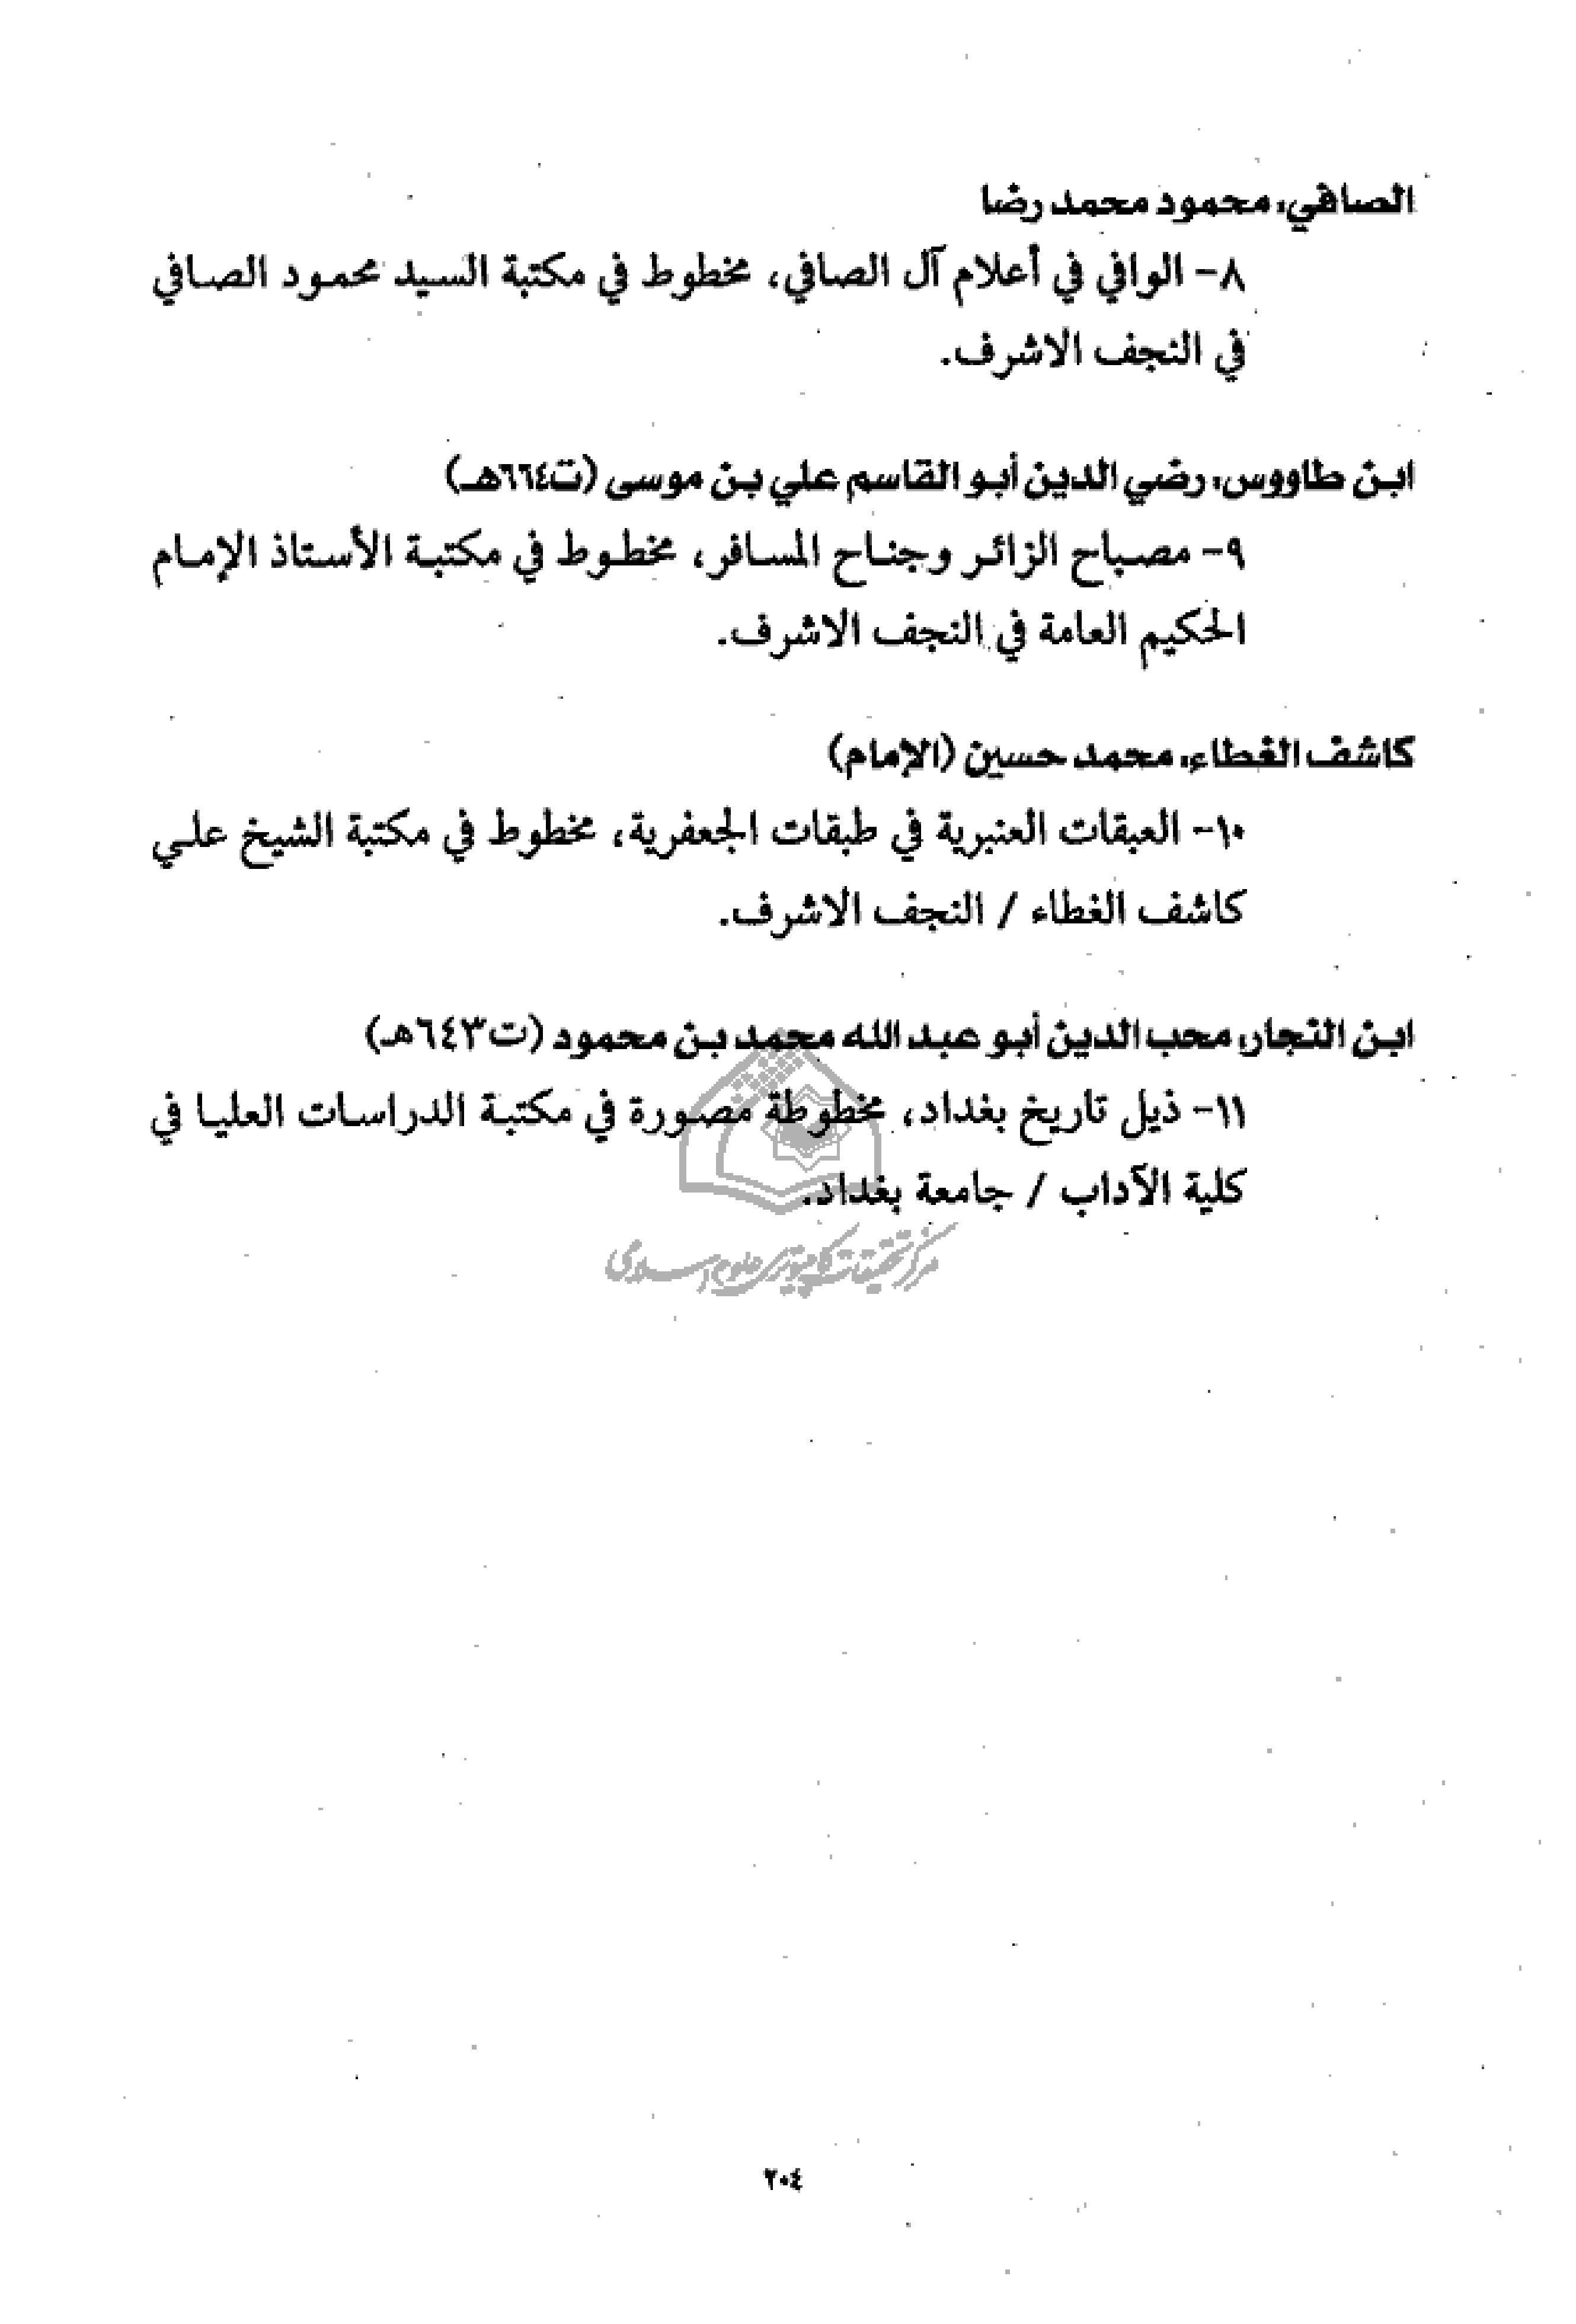 الصافي، محمود محمد رضا
٨- الوافي في أعلام آل الصافي، مخطوط في مكتبة السيد محمود الصافي
في النجف الاشرف.
ابن طاووس، رضي الدين أبو القاسم علي بن موسى (ت٦٦٤هـ)
٩- مصباح الزائر وجناح المسافر، مخطوط في مكتبة الأستاذ الإمام
الحكيم العامة في النجف الاشرف.
كاشف الغطاء، محمد حسين (الإمام)
١٠- العبقات العنبرية في طبقات الجعفرية، مخطوط في مكتبة الشيخ علي
كاشف الغطاء / النجف الاشرف.
ابن النجار، محب الدين أبو عبد الله محمد بن محمود (ت٦٤٣هـ)
١١- ذيل تاريخ بغداد، مخطوطة مصورة في مكتبة الدراسات العليا في
كلية الآداب / جامعة بغداد.
مرکز تحقیقات کامپیوتری علوم اسلامی
٢٠٤